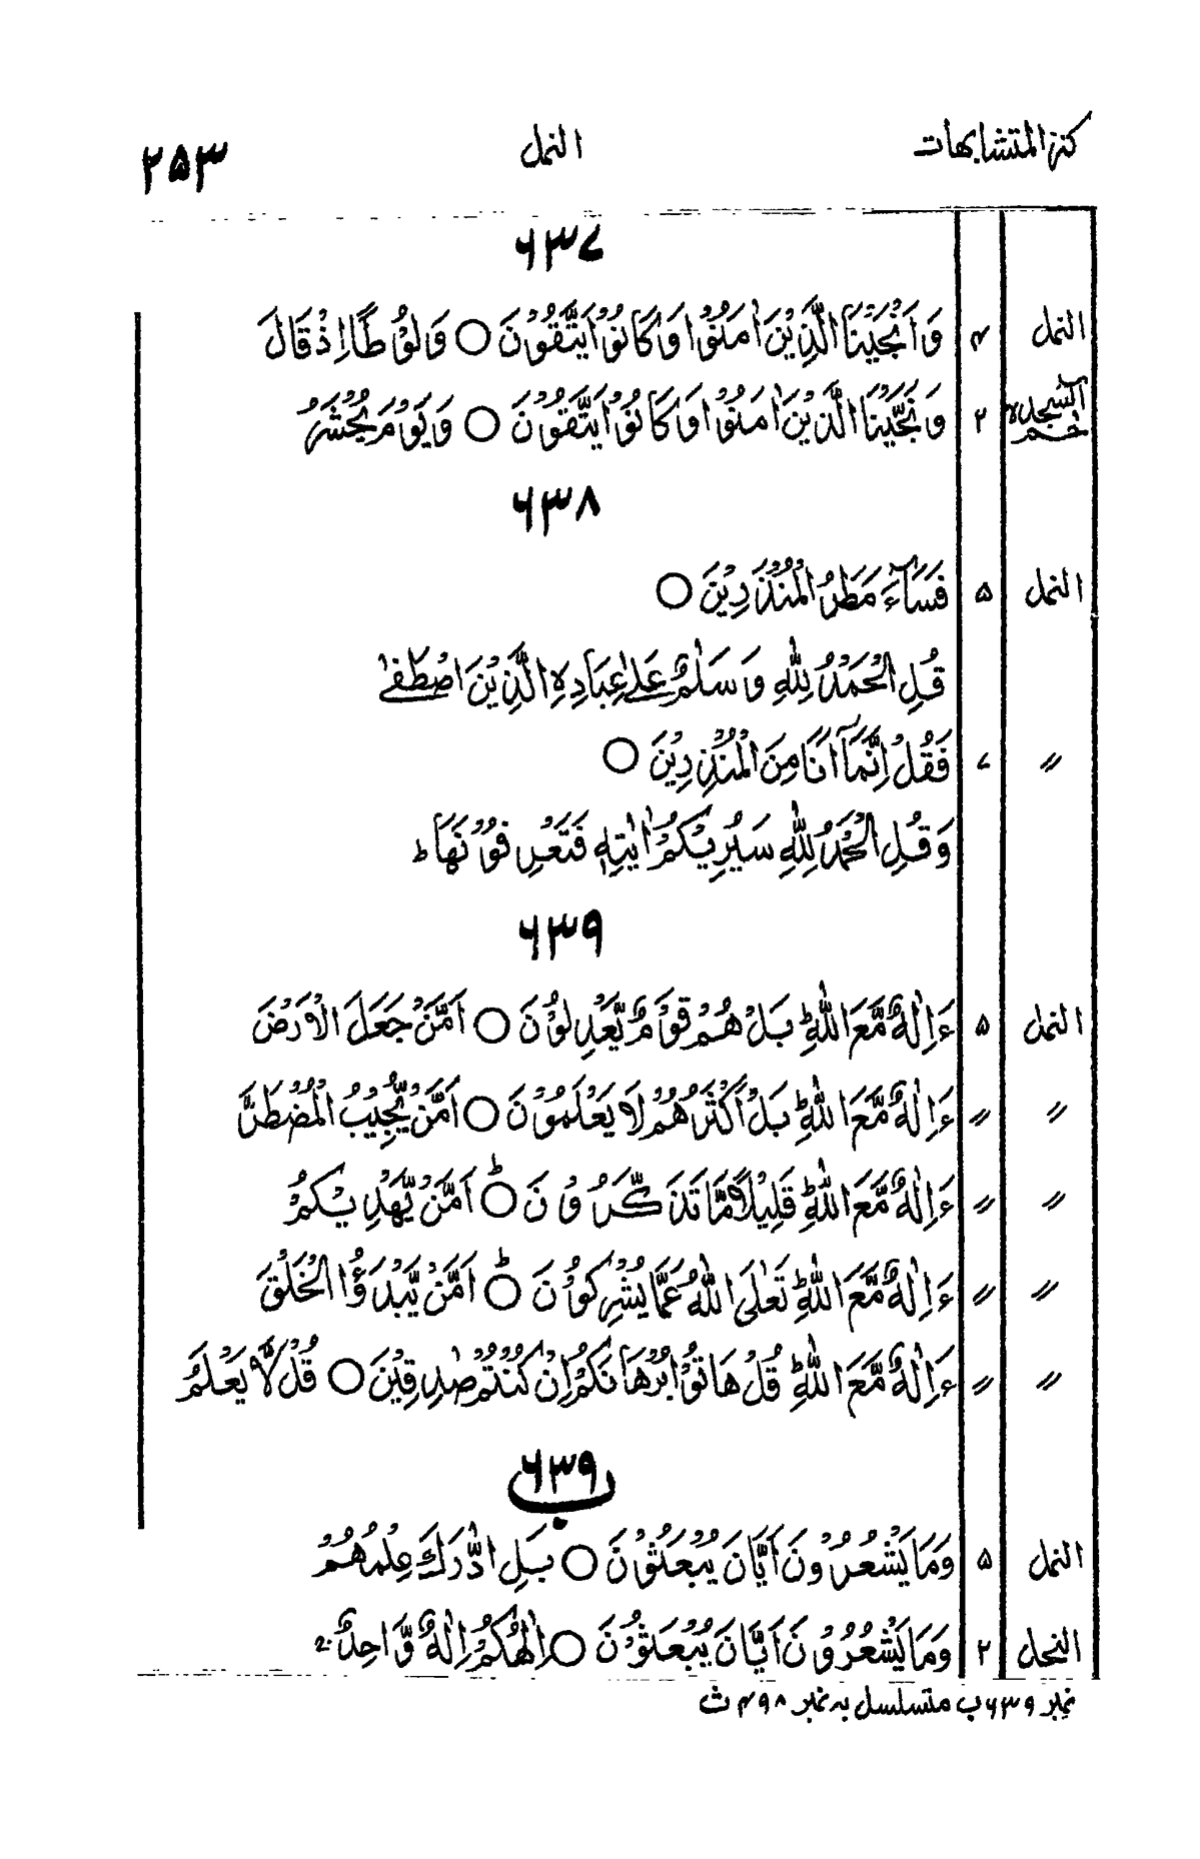 كنز المتشابهات النمل ۲۵۳
۶۳۷
النمل ۴ وَاَنْجَيْنَا الَّذِيْنَ اٰمَنُوْا وَكَانُوْا يَتَّقُوْنَ ○ وَلُوْطًا اِذْ قَالَ
حٰم السجدة ۲ وَنَجَّيْنَا الَّذِيْنَ اٰمَنُوْا وَكَانُوْا يَتَّقُوْنَ ○ وَيَوْمَ يُحْشَرُ
۶۳۸
النمل ۵ فَسَآءَ مَطَرُ الْمُنْذَرِيْنَ ○
قُلِ الْحَمْدُ لِلّٰهِ وَسَلٰمٌ عَلٰى عِبَادِهِ الَّذِيْنَ اصْطَفٰى
〃 ۷ فَقُلْ اِنَّمَآ اَنَا مِنَ الْمُنْذِرِيْنَ ○
وَقُلِ الْحَمْدُ لِلّٰهِ سَيُرِيْكُمْ اٰيٰتِهٖ فَتَعْرِفُوْنَهَا ط
۶۳۹
النمل ۵ ءَاِلٰهٌ مَّعَ اللّٰهِ ط بَلْ هُمْ قَوْمٌ يَّعْدِلُوْنَ ○ اَمَّنْ جَعَلَ الْاَرْضَ
〃 〃 ءَاِلٰهٌ مَّعَ اللّٰهِ ط بَلْ اَكْثَرُهُمْ لَا يَعْلَمُوْنَ ○ اَمَّنْ يُّجِيْبُ الْمُضْطَرَّ
〃 〃 ءَاِلٰهٌ مَّعَ اللّٰهِ ط قَلِيْلًا مَّا تَذَكَّرُوْنَ ○ ط اَمَّنْ يَّهْدِيْكُمْ
〃 〃 ءَاِلٰهٌ مَّعَ اللّٰهِ ط تَعٰلَى اللّٰهُ عَمَّا يُشْرِكُوْنَ ○ ط اَمَّنْ يَّبْدَؤُا الْخَلْقَ
〃 〃 ءَاِلٰهٌ مَّعَ اللّٰهِ ط قُلْ هَاتُوْا بُرْهَانَكُمْ اِنْ كُنْتُمْ صٰدِقِيْنَ ○ قُلْ لَّا يَعْلَمُ
۶۳۹ ب
النمل ۵ وَمَا يَشْعُرُوْنَ اَيَّانَ يُبْعَثُوْنَ ○ بَلِ ادّٰرَكَ عِلْمُهُمْ
النحل ۲ وَمَا يَشْعُرُوْنَ اَيَّانَ يُبْعَثُوْنَ ○ اِلٰهُكُمْ اِلٰهٌ وَّاحِدٌ
نمبر ۶۳۹ ب متسلسل به نمبر ۴۹۸ ث